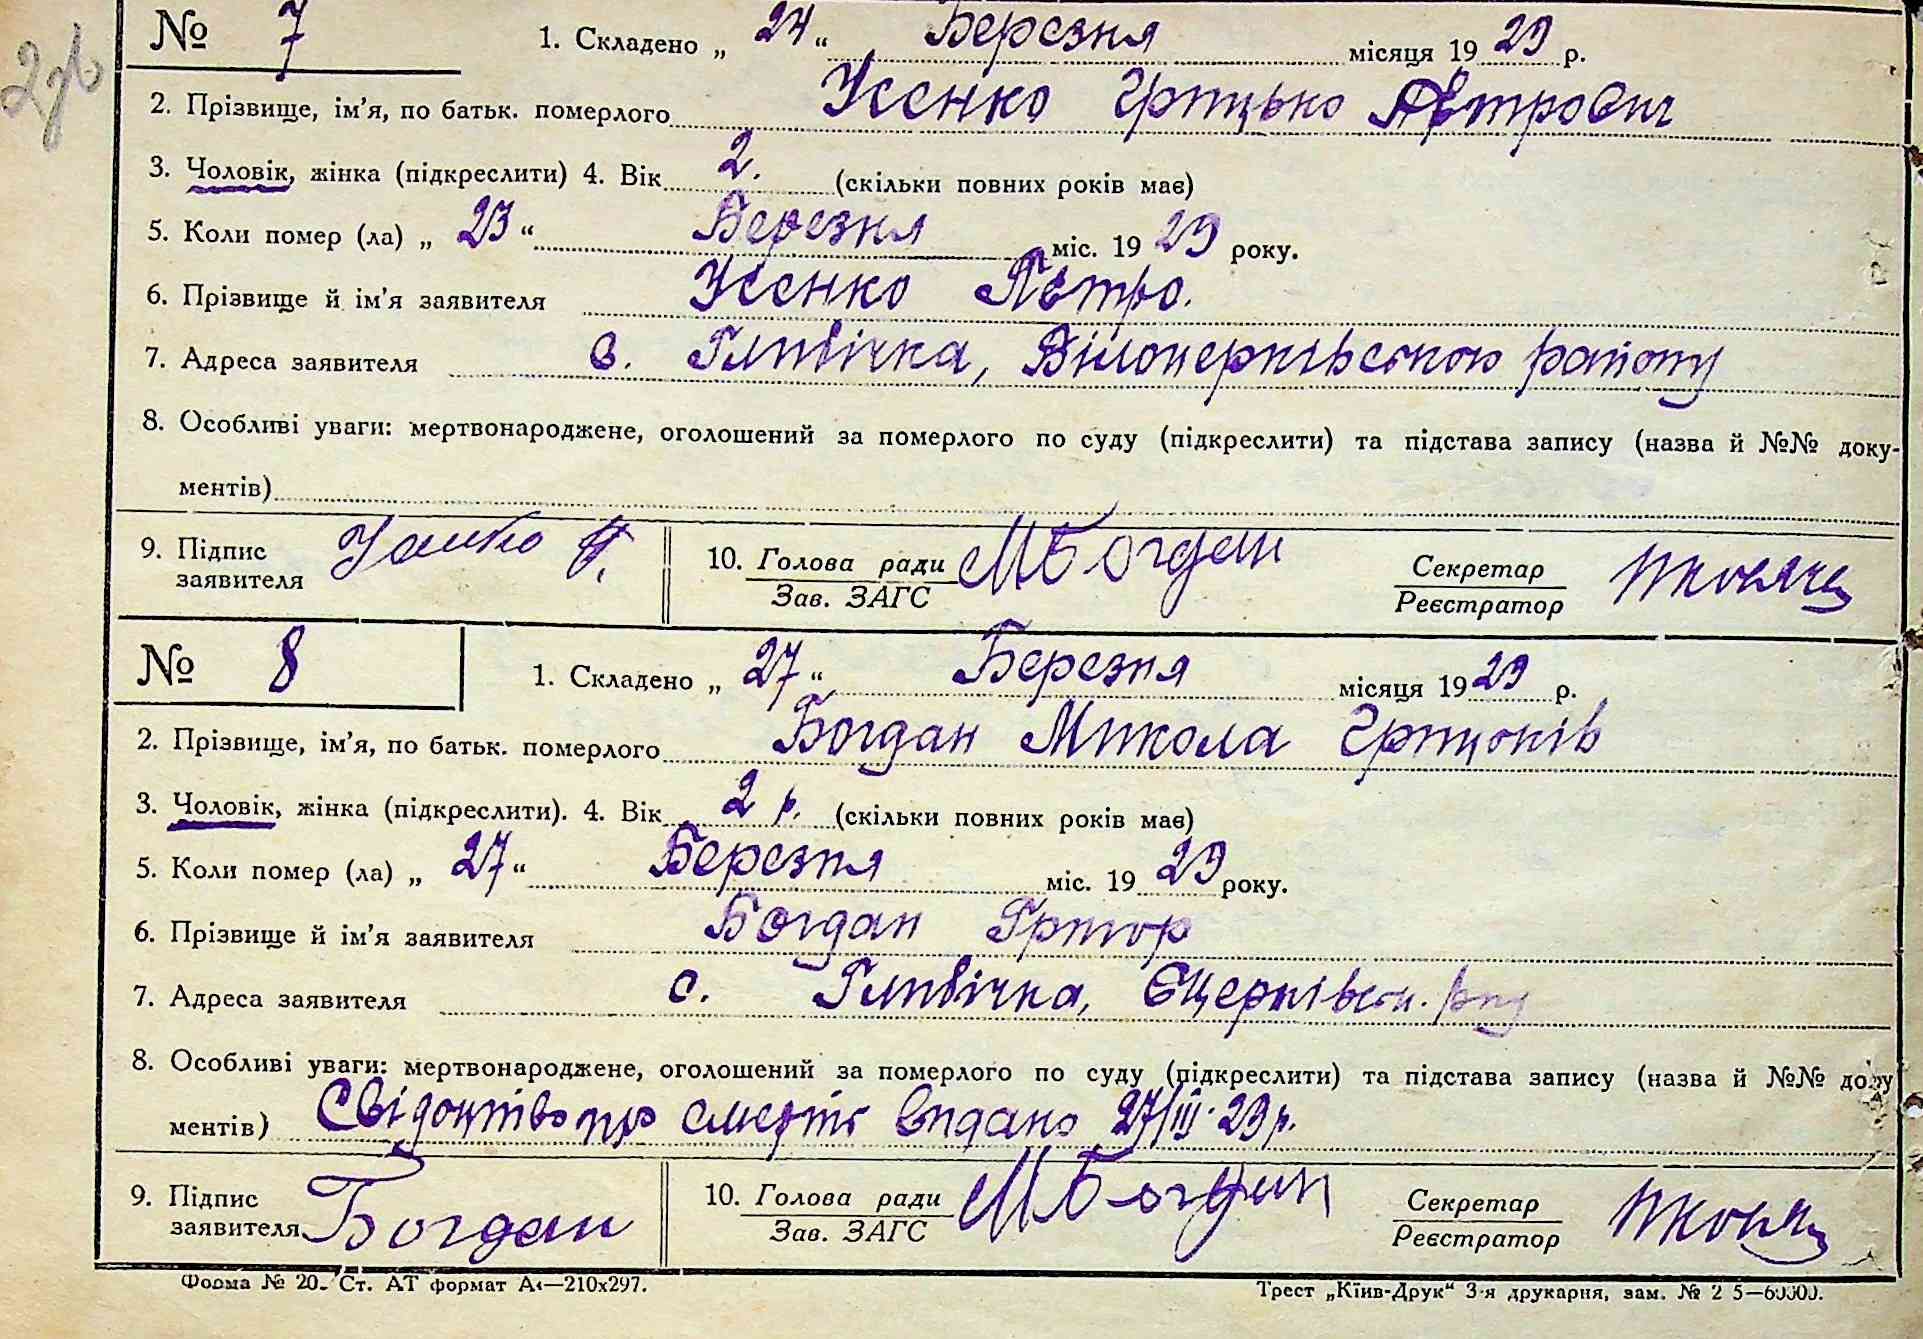 № 7 1. Складено „ 24 “ Березня місяця 19 29 р.
2. Прізвище, ім'я, по батьк. померлого Усенко Грицько Петрович
3. Чоловік, жінка (підкреслити) 4. Вік 2. (скільки повних років має)
5. Коли помер (ла) „ 23 “ Березня міс. 19 29 року.
6. Прізвище й ім'я заявителя Усенко Петро.
7. Адреса заявителя с. Глибічка, Білоцерківського району
8. Особливі уваги: мертвонароджене, оголошений за померлого по суду (підкреслити) та підстава запису (назва й №№ доку-
ментів)
9. Підпис заявителя
10. Голова ради МБогдан Секретар
Зав. ЗАГС Реєстратор
№ 8 1. Складено „ 27 “ Березня місяця 19 29 р.
2. Прізвище, ім'я, по батьк. померлого Богдан Микола Грицьків
3. Чоловік, жінка (підкреслити). 4. Вік 2 р. (скільки повних років має)
5. Коли помер (ла) „ 27 “ Березня міс. 19 29 року.
6. Прізвище й ім'я заявителя Богдан Григор
7. Адреса заявителя с. Глибічка,
8. Особливі уваги: мертвонароджене, оголошений за померлого по суду (підкреслити) та підстава запису (назва й №№ доку
ментів) Свідоцтво про смерть видано 27/III·29 р.
9. Підпис заявителя Богдан
10. Голова ради МБогдан Секретар
Зав. ЗАГС Реєстратор
Форма № 20. Ст. АТ формат А4—210х297. Трест „Київ-Друк“ 3-я друкарня, зам. №